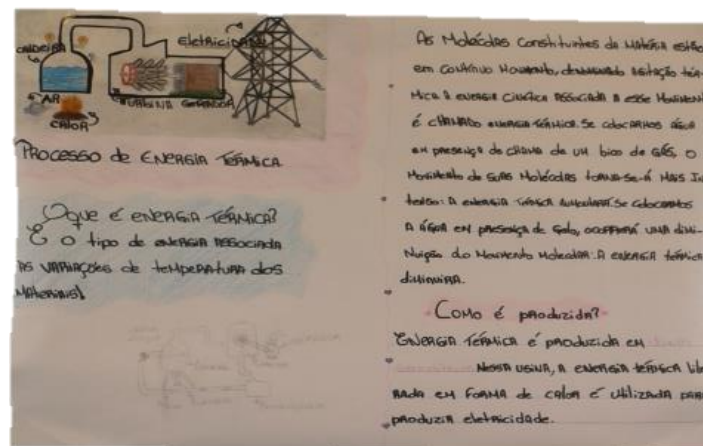 Eletricidade
CALDEIRA
AR
CALOR
TURBINA GERADOR
PROCESSO de ENERGIA TÉRMICA
O que é ENERGIA TÉRMICA?
É o tipo de energia associada
as variações de temperatura dos
materiais!
As Moléculas Constituintes da Matéria estão
em contínuo Movimento, denominado agitação tér-
mica a energia cinética associada a esse Movimento
é chamado energia térmica. Se colocarmos água
em presença de chama de um bico de gás, o
Movimento de suas Moléculas torna-se-á Mais In
tenso: a energia térmica aumentará. Se colocarmos
a água em presença de gelo, ocorrerá uma dimi-
nuição do Movimento Molecular: a energia térmica
diminuira.
Como é produzida?
ENERGIA TÉRMICA é produzida em
Nessa usina, a energia térmica libe
rada em forma de calor é utilizada para
produzir eletricidade.